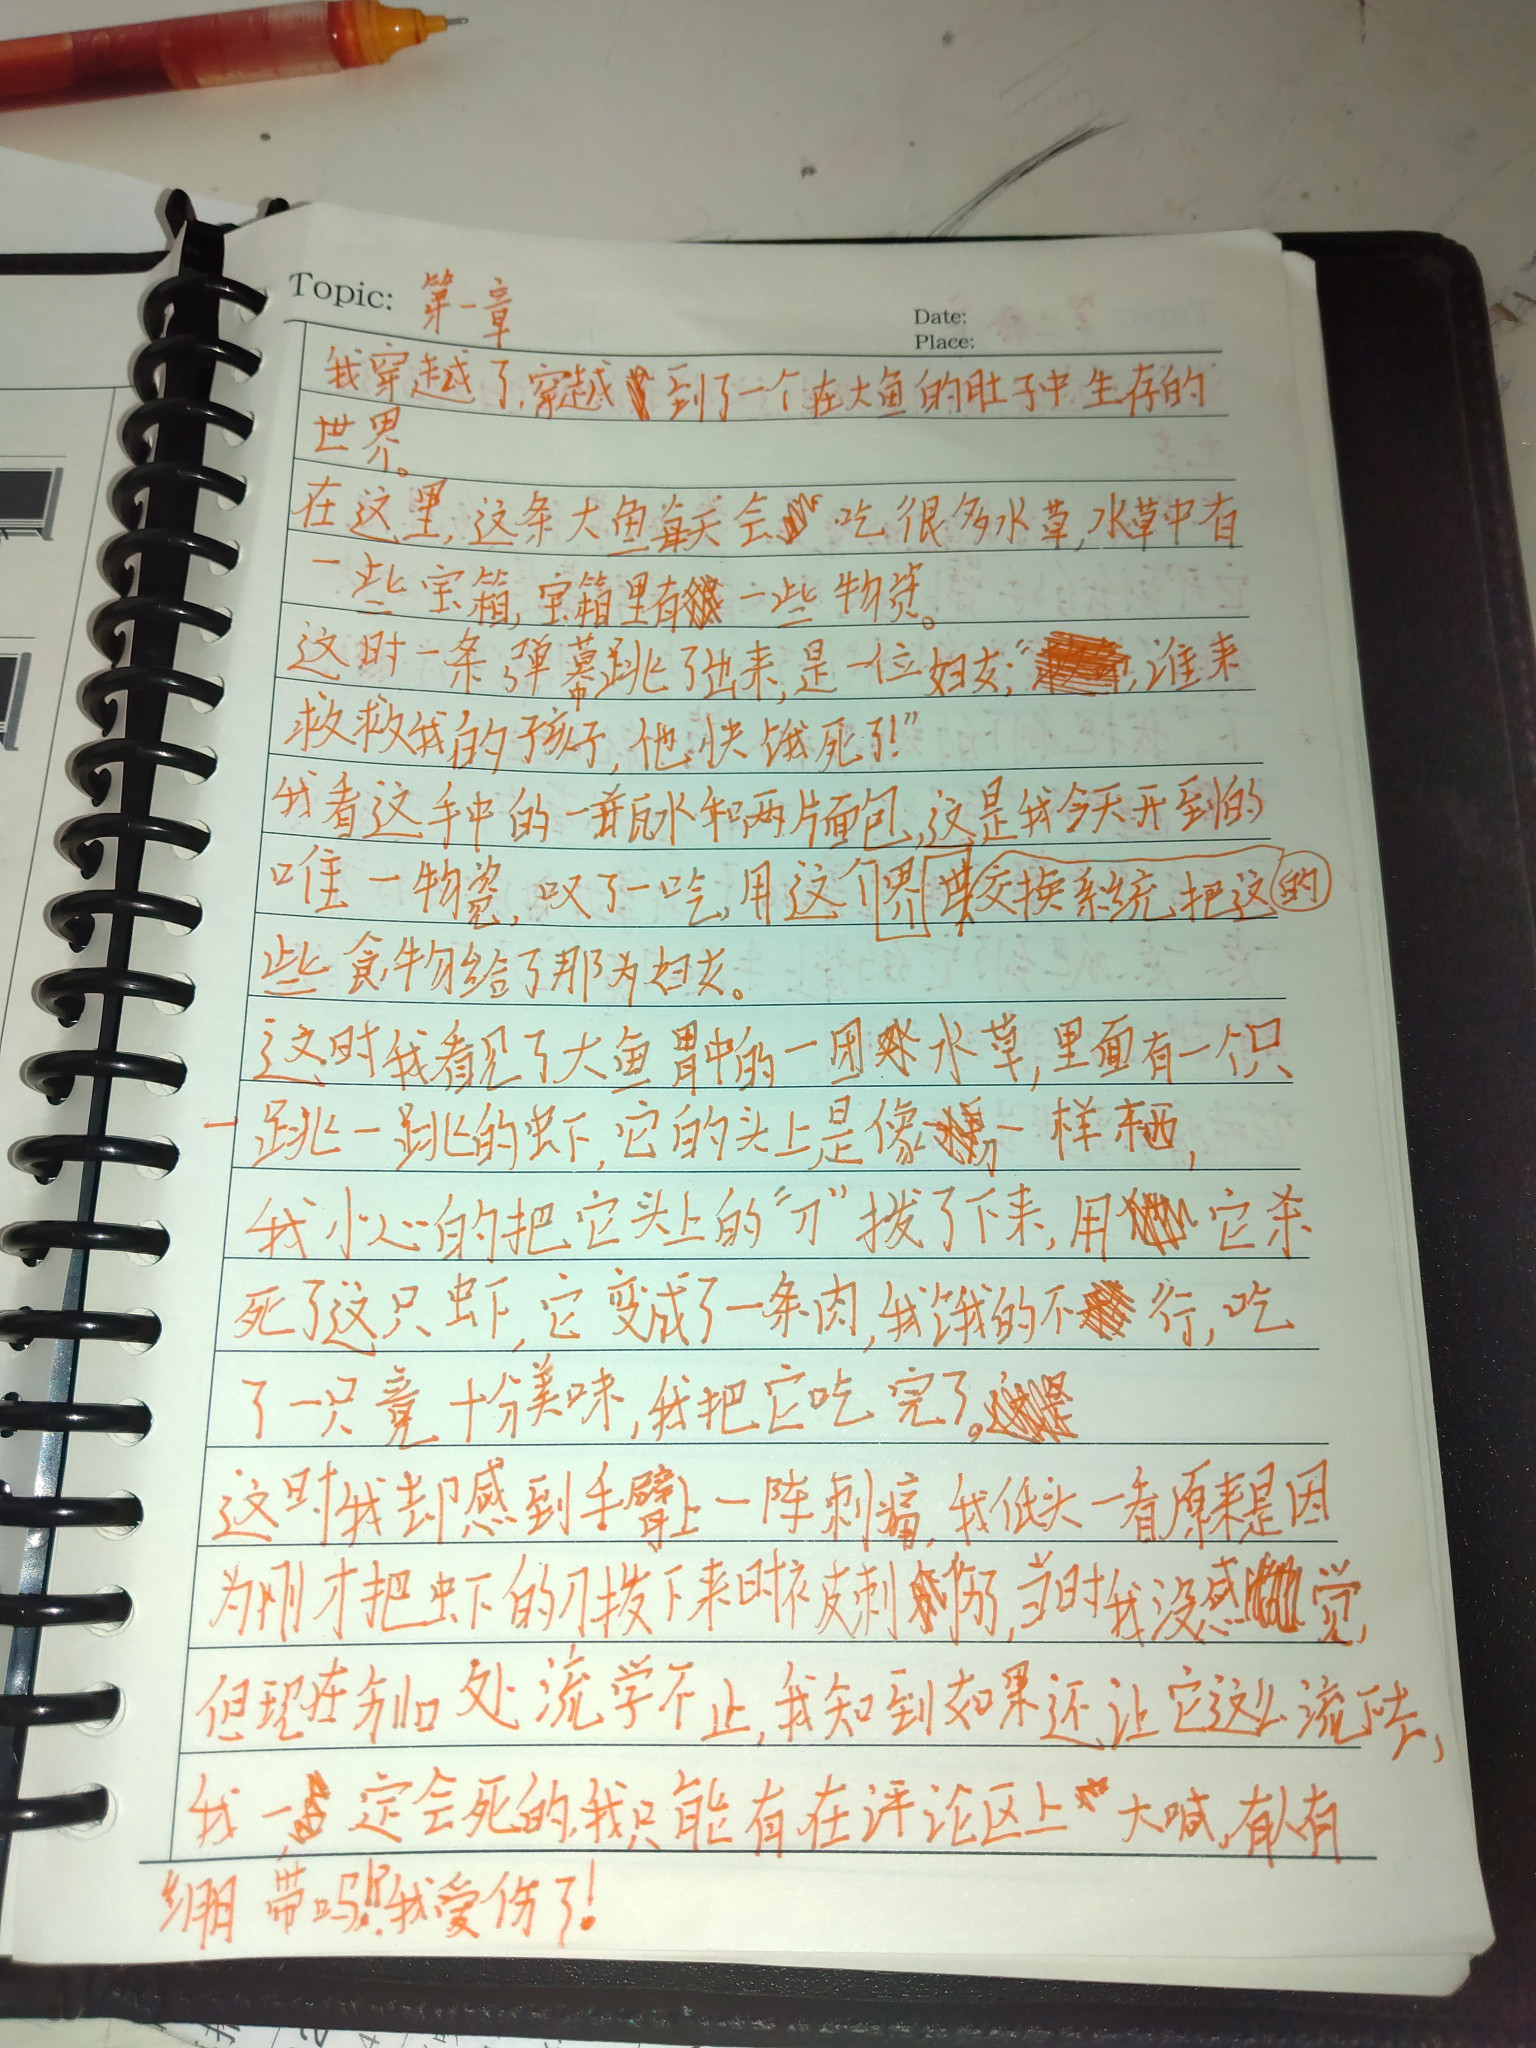 Topic: 第一章
Date:
Place:
我穿越了,穿越到了一个在大鱼的肚子中生存的
世界。
在这里,这条大鱼每天会吃很多水草,水草中有
一些宝箱,宝箱里有一些物资。
这时一条弹幕跳了出来,是一位妇女:“谁来
救救我的孩子,他快饿死了!”
我看这手中的一瓶水和两片面包,这是我今天开到的
唯一物资,叹了一吃,用这个界世交换系统把这的
些食物给了那为妇女。
这时我看见了大鱼胃中的一团水草,里面有一个只
一跳一跳的虾,它的头上是像一样东西,
我小心的把它头上的“刀”拨了下来,用它杀
死了这只虾,它变成了一条肉,我饿的不行,吃
了一只竟十分美味,我把它吃完了。
这时我却感到手臂上一阵刺痛,我低头一看原来是因
为刚才把虾的刀拨下来时被刺伤,当时我没感觉,
但现在别口处流学不止,我知到如果还让它这么流下去,
我一定会死的,我只能有在评论区上大喊,有人有
绷带吗!?我受伤了!